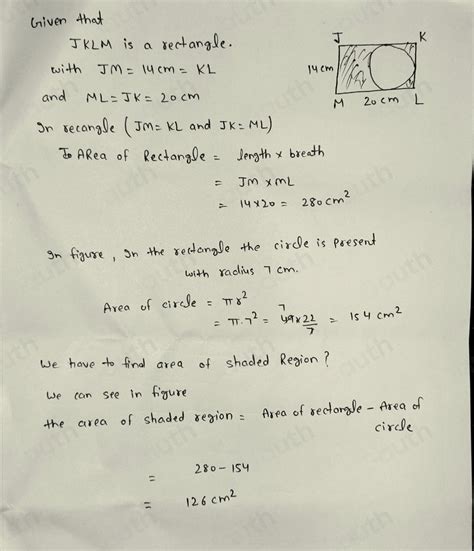 Given that
JKLM is a rectangle.
with JM = 14 cm = KL
and ML = JK = 20 cm
J K
14 cm
M 20 cm L
In recangle (JM = KL and JK = ML)
ARea of Rectangle = length x breath
= JM x ML
= 14 x 20 = 280 cm²
In figure, In the rectangle the circle is present
with radius 7 cm.
Area of circle = πr²
= π.7² = 49 x 22/7 = 154 cm²
7
We have to find area of shaded Region?
We can see in figure
the area of shaded region = Area of rectangle - Area of
circle
= 280 - 154
= 126 cm²